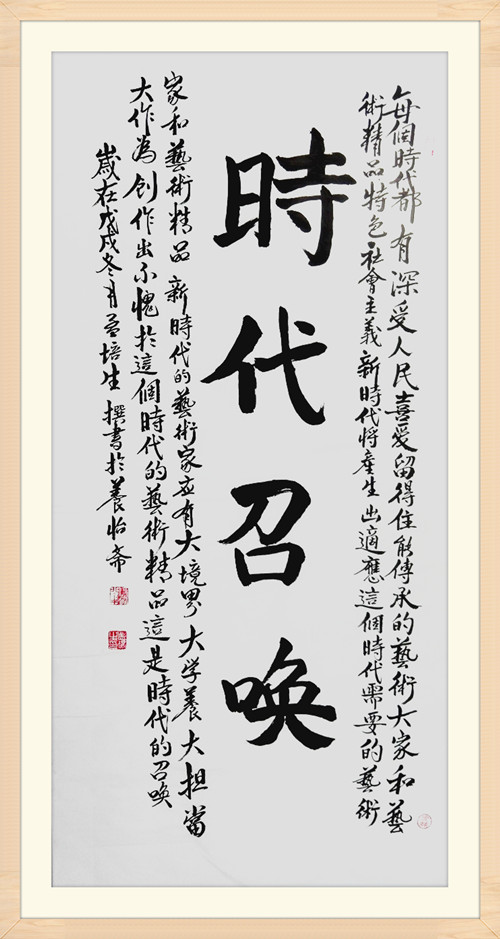 每個時代都有深受人民喜愛留得住能傳承的藝術大家和藝
術精品特色社會主義新時代將產生出適應這個時代需要的藝術
時代召喚
家和藝術精品新時代的藝術家應有大境界大学養大担當
大作為創作出不愧於這個時代的藝術精品這是時代的召喚
歲在戊戌冬月孟培生撰書於養怡斋